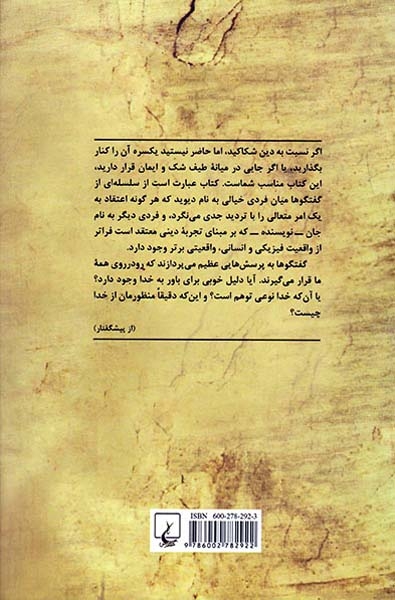 اگر نسبت به دین شکاکید، اما حاضر نیستید یکسره آن را کنار
بگذارید، یا اگر جایی در میانهٔ طیف شک و ایمان قرار دارید،
این کتاب مناسب شماست. کتاب عبارت است از سلسله‌ای از
گفتگوها میان فردی خیالی به نام دیوید که هر گونه اعتقاد به
یک امر متعالی را با تردید جدی می‌نگرد، و فردی دیگر به نام
جان ــ نویسنده ــ که بر مبنای تجربهٔ دینی معتقد است فراتر
از واقعیت فیزیکی و انسانی، واقعیتی برتر وجود دارد.
گفتگوها به پرسش‌هایی عظیم می‌پردازند که رودرروی همهٔ
ما قرار می‌گیرند. آیا دلیل خوبی برای باور به خدا وجود دارد؟
یا آن‌که خدا نوعی توهم است؟ و این‌که دقیقاً منظورمان از خدا
چیست؟
(از پیشگفتار)
ISBN 600-278-292-3
9 786002 782922
ققنوس